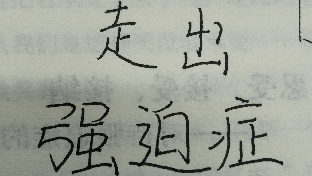 走出
强迫症